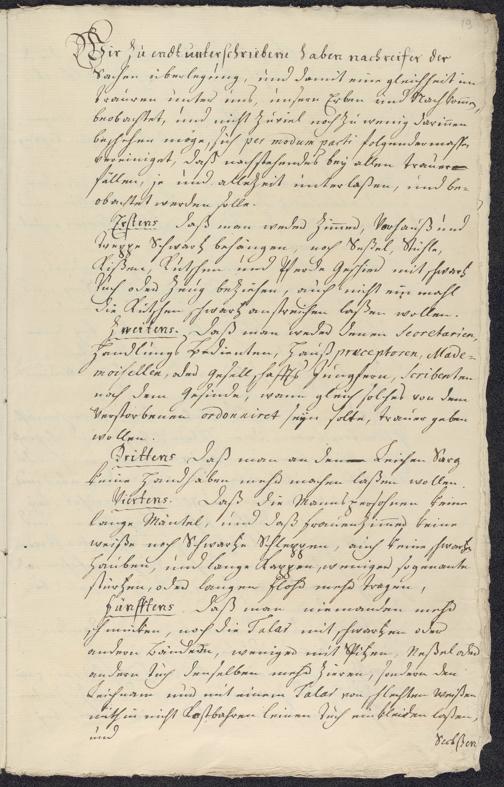 19
Wir zu endt unterschriebene haben nach reifer der
Sachen überlegung, und damit eine gleichheit im
trauren unter uns, unsern Erben und Nachkommen,
beobachtet, und nicht zuviel noch zu wenig darinnen
beschehen möge, sich per modum pacti folgender masse
vereiniget, daß nachstehendes bey allen trauer
fällen, je und allezeit unterlaßen, und be-
obachtet werden solle.
Erstens daß man weder Zimmer, Vorhauß und
Treppe Schwartz behängen, noch Seßel, Stühle,
Kißen, Kutschen und Pferde Geschirr mit schwartz
Tuch oder Zeug beziehen, auch nicht ein mahl
die Kutschen schwartz anstreichen laßen wollen.
Zweitens. Daß man weder denen Secretarien,
Handlungs Bedienten, Hauß præceptoren, Made-
moisellen, oder Gesellschaffts Jungfern, Scribenten
noch dem Gesinde, wann gleich solches von dem
Verstorbenen ordonniret seyn solte, trauer geben
wollen.
Drittens daß man an den Leichen Sarg
keine Handhaben mehr machen laßen wollen.
Viertens. Daß die Manns personen keine
lange Mäntel, und daß Frauenzimmer keine
weiße noch Schwartze Schleppen, auch keine schwartze
Hauben, und lange Kappen, weniger so genante
stürtzen, oder langen Flohr mehr tragen,
Fünfftens daß man niemanden mehr
schmücken, noch die Talar mit schwartzen oder
andern Bändern, weniger mit Spitzen, Neßel oder
andern Tuch denselben mehr zieren, sondern den
Leichnam nur mit einem Talar von schlechten weißen
mithin nicht kostbahren leinen Tuch einkleiden laßen,
und
Sechßtens